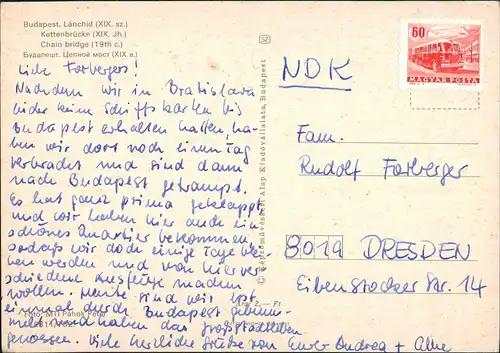 Budapest. Lánchíd (XIX. sz.)
Kettenbrücke (XIX. Jh.)
Chain bridge (19th c.)
Будапешт. Цепной мост (XIX в.)
Liebe Forbergers!
Nachdem wir in Bratislava
leider keine Schiffskarten bis
Budapest erhalten hatten, ha-
ben wir dort noch einen Tag
verbracht und sind dann
nach Budapest getrampt.
Es hat ganz prima geklappt
und wir haben hier auch ein
schönes Quartier bekommen,
sodaß wir doch einige Tage
werden und von hier
schiedene Ausflüge machen
wollen. Heute sind wir erst
einmal durch Budapest gebum-
melt und haben das Großstadtleben
genossen. Viele herzliche Grüße von Eurer Andrea +
Foto: MTI
Ára: 2,— Ft
© Képzőművészeti Alap Kiadóvállalata, Budapest
60 f
MAGYAR POSTA
NDK
Fam.
Rudolf Forberger
8019 DRESDEN
Eibenstocker Str. 14